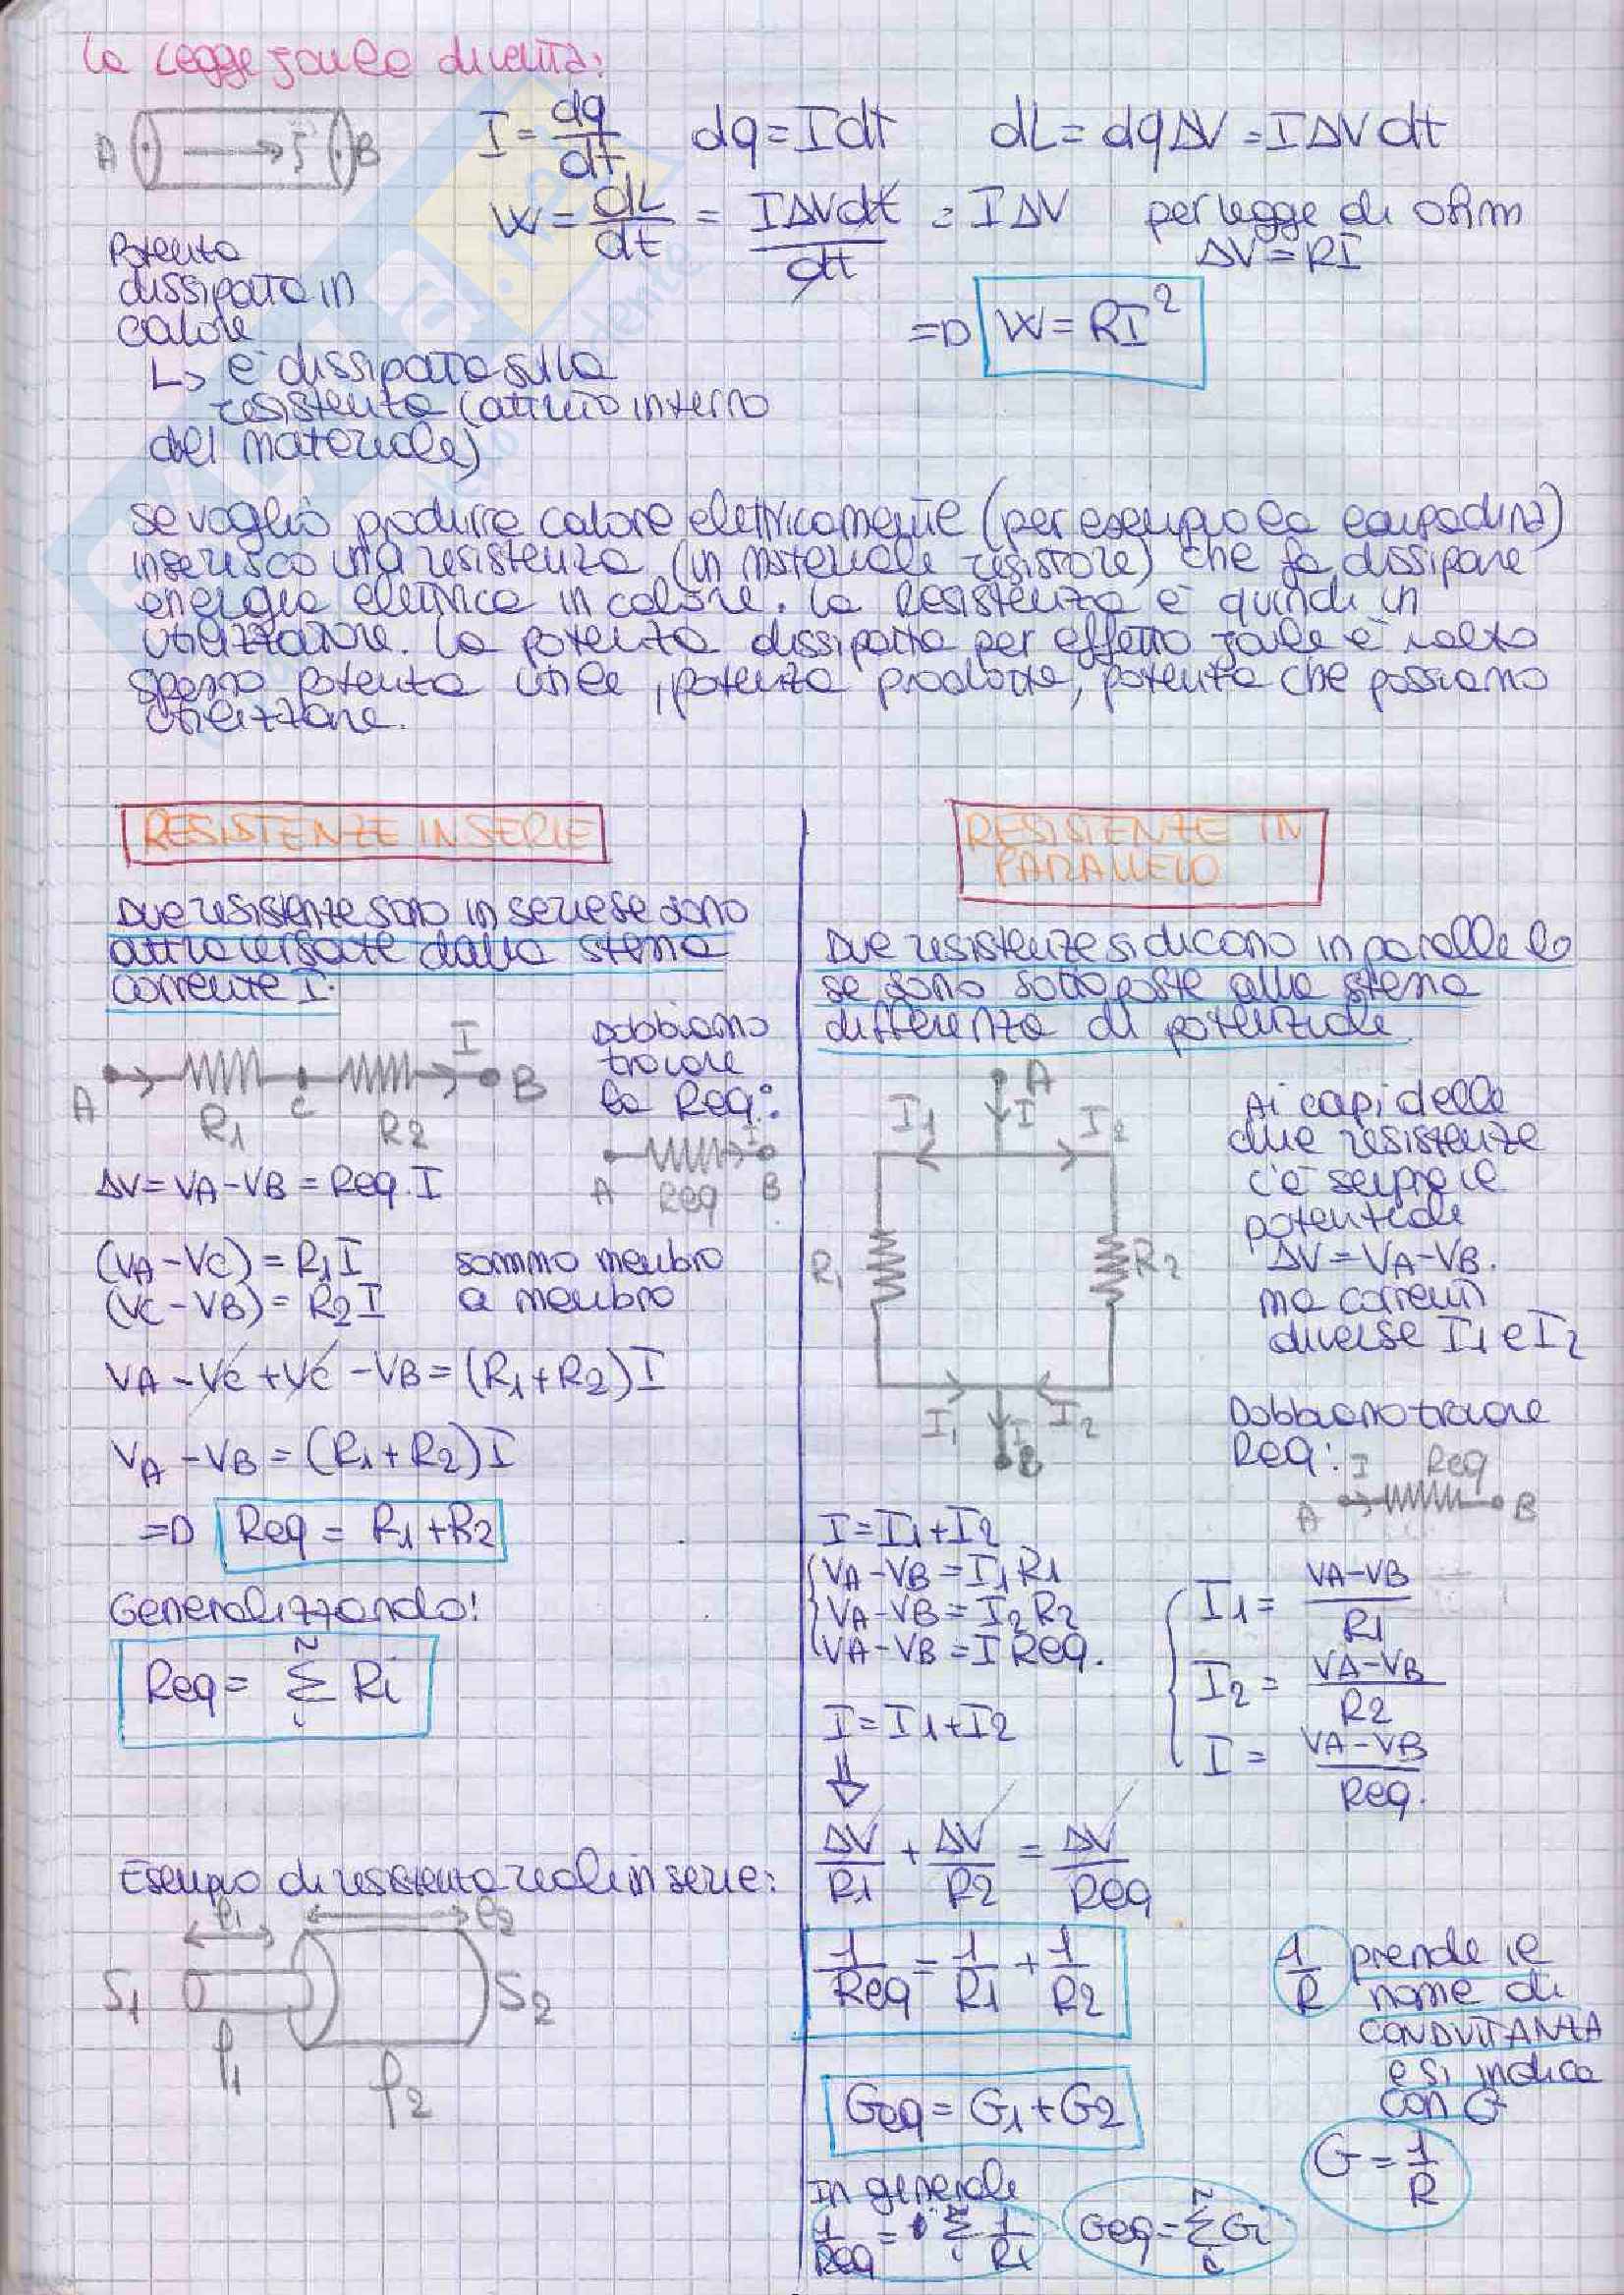 La legge Joule diventa:
A B
I = dq/dt dq = Idt dL = dqΔV = IΔVdt
W = dL/dt = IΔVdt/dt = IΔV per legge di ohm
ΔV = RI
=D W = RI²
Potenza
dissipata in
calore
↳ è dissipata sulla
resistenza (attrito interno
del materiale)
se voglio produrre calore elettricamente (per esempio la lampadina)
inserisco una resistenza (un materiale resistore) che fa dissipare
energia elettrica in calore. La resistenza è quindi un
utilizzatore. La potenza dissipata per effetto Joule è molto
spesso potenza utile, potenza prodotta, potenza che possiamo
utilizzare.
RESISTENZE IN SERIE
Due resistenze sono in serie se sono
attraversate dalla stessa
corrente I.
A R1 C R2 I B
Dobbiamo
trovare
la Req:
A Req I B
ΔV = VA - VB = Req. I
(VA - VC) = R1 I sommo membro
(VC - VB) = R2 I a membro
VA - VC + VC - VB = (R1 + R2) I
VA - VB = (R1 + R2) I
=D Req = R1 + R2
Generalizzando!
Req = Σ Ri
N
i
Esempio di resistenza reale in serie:
l1 l2
S1 S2
ρ1 ρ2
RESISTENZE IN
PARALLELO
Due resistenze si dicono in parallelo
se sono sottoposte alla stessa
differenza di potenziale.
A
I1 I I2
R1 R2
I1 I I2
B
Ai capi delle
due resistenze
c'è sempre il
potenziale
ΔV = VA - VB.
ma correnti
diverse I1 e I2
Dobbiamo trovare
Req:
I Req
A B
I = I1 + I2
VA - VB = I1 R1
VA - VB = I2 R2
VA - VB = I Req.
I1 = VA - VB / R1
I2 = VA - VB / R2
I = VA - VB / Req.
I = I1 + I2
⇓
ΔV/R1 + ΔV/R2 = ΔV/Req
1/Req = 1/R1 + 1/R2
1/R prende il
nome di
CONDUTTANZA
e si indica
con G
Geq = G1 + G2
G = 1/R
In generale
1/Req = Σ 1/Ri
Geq = Σ Gi